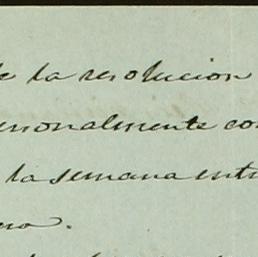 de la resolucion
ersonalmente co
la semana entr
ero.